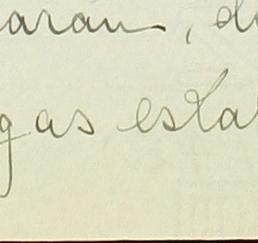 aran, d
gas estar